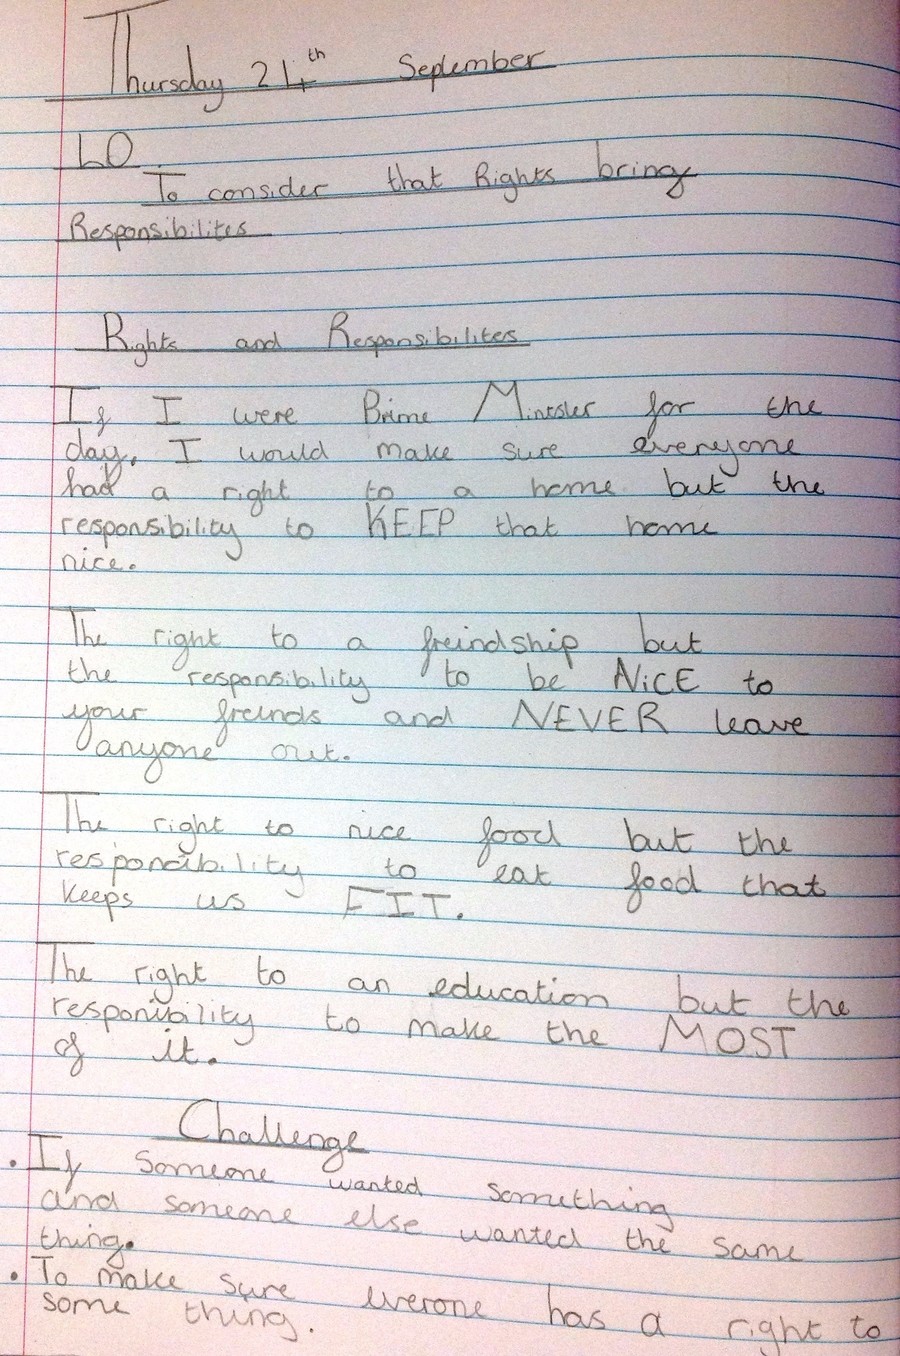 Thursday 24th September
LO
To consider that Rights bring
Responsibilites
Rights and Responsibilites
If I were Prime Mintsler for the
day, I would make sure everyone
had a right to a home but the
responsibility to KEEP that home
nice.
The right to a freindship but
the responsibility to be NiCE to
your freinds and NEVER leave
anyone out.
The right to nice food but the
responcibility to eat food that
keeps us FIT.
The right to an education but the
responibility to make the MOST
of it.
Challenge
• If someone wanted something
and someone else wanted the same
thing.
• To make sure everone has a right to
some thing.